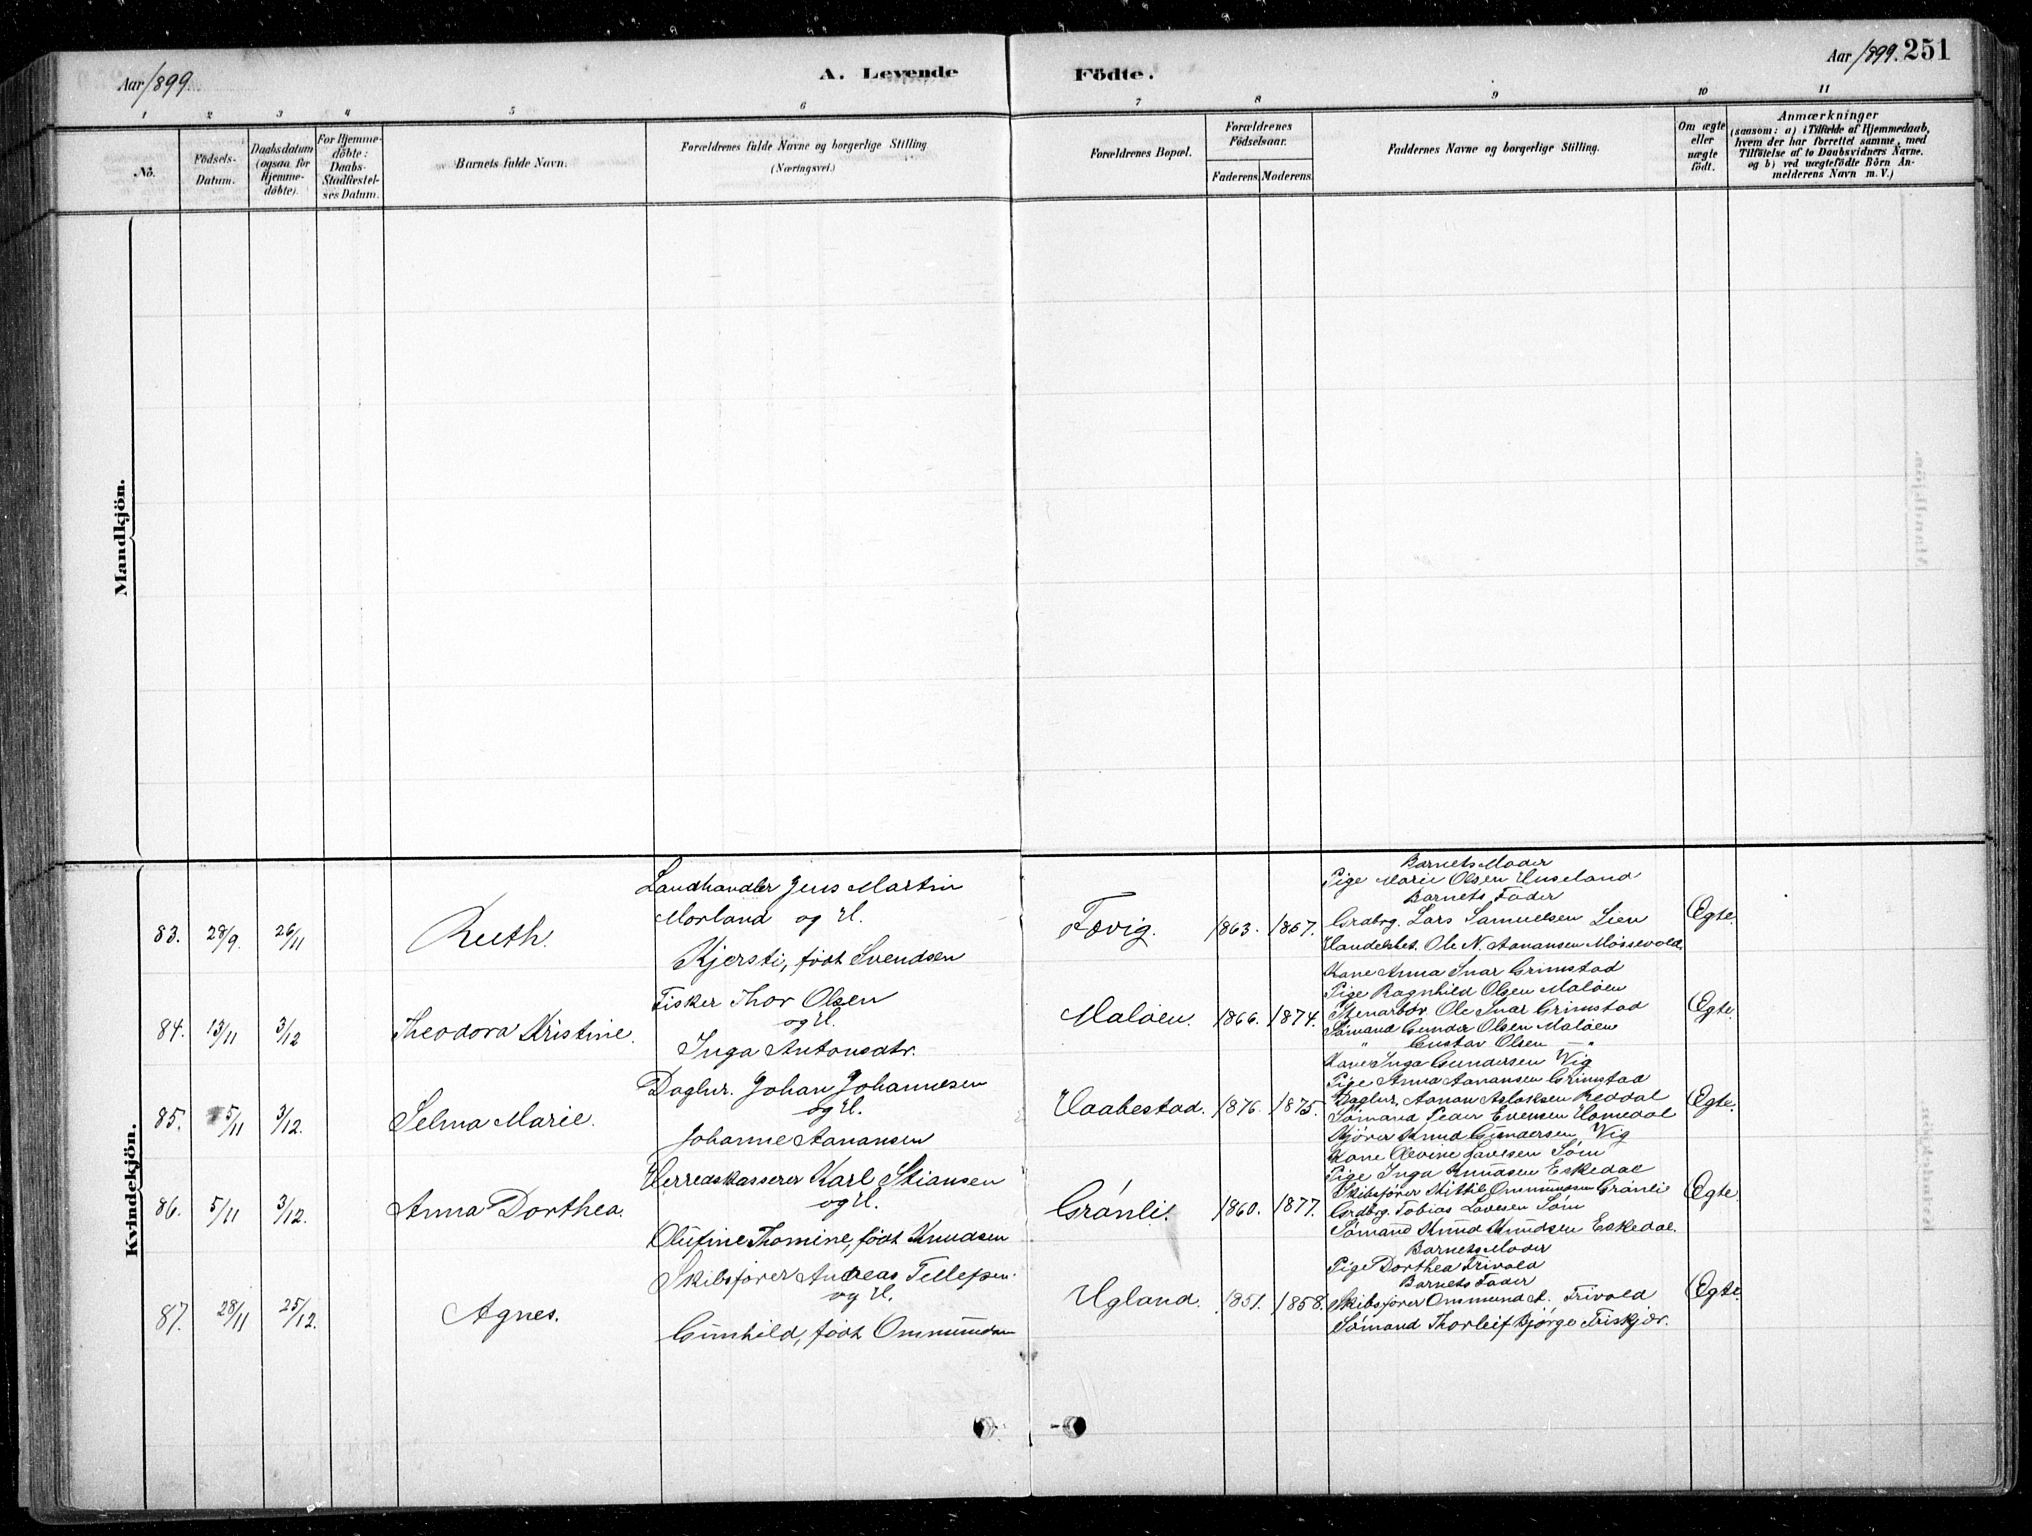 Aar 1899.
A. Levende
Födte.
Aar 1899. 251
1 2 3 4 5 6 7 8 9 10 11
No.
Födsels-Datum.
Daabsdatum (ogsaa for Hjemmedöbte).
For Hjemmedöbte: Daabs-Stadfæstelses Datum.
Barnets fulde Navn.
Forældrenes fulde Navne og borgerlige Stilling
(Næringsvei.)
Forældrenes Bopæl.
Forældrenes Födselsaar.
Faderens. Moderens.
Faddernes Navne og borgerlige Stilling.
Om ægte eller uægte födt.
Anmærkninger
(saasom: a) i Tilfælde af Hjemmedaab,
hvem der har forrettet samme, med
Tilföielse af to Daabsvidners Navne.
og b) ved uægtefödte Börn An-
melderens Navn m. V.)
Mandkjön.
Kvindekjön.
83. 28/9. 26/11 Ruth.
Landhandler Jens Martin
Morland og H.
Kjersti, født Svendsen
Fævig. 1863. 1867.
Barnets Moder
Pige Marie Olsen Huseland
Barnets Fader
Grdbrg. Lars Samuelsen Lien
Handelsbet. Ole N. Aanansen Mossevold.
Egte.
84. 13/11 3/12 Theodora Kristine.
Fisker Thor Olsen
og H.
Inga Antonsdtr.
Maløen. 1866. 1874.
Kone Anna Ivar Grimstad
Pige Ragnhild Olsen Maløen
Stenarbdr. Ole Ivar Grimstad
Sømand Gunder Olsen Maløen
" Gustav Olsen — "
Egte.
85. 5/11 3/12. Selma Marie.
Daglnr. Johan Johannesen
og H.
Johanne Aanansen
Haabestad. 1876. 1875.
Kone Inga Gundersen Vig
Pige Anna Aanansen Grimstad
Daglnr. Aanan Aslaksen Reddal
Sømand Peder Evensen Homedal
Kjører Knud Gundersen Vig
Egte.
86. 5/11 3/12. Anna Dorthea.
Herredskasserer Karl Stiansen
og H.
Olufine Thomine, født Knudsen
Grønli. 1860. 1877.
Kone Olevine Lavesen Søm
Pige Inga Knudsen Eskedal
Skibsfører Kittil Ommundsen Grønli
Grdbrg. Tobias Lavesen Søm
Sømand Knud Knudsen Eskedal.
Egte.
87. 28/11 25/12. Agnes.
Skibsfører Andreas Tellefsen
og H.
Gunhild, født Ommundsen
Ugland. 1851. 1858.
Barnets Moder
Pige Dorthea Trivold
Barnets Fader
Skibsfører Ommund A. Trivold
Sømand Thorleif Bjørge Friskjær.
Egte.